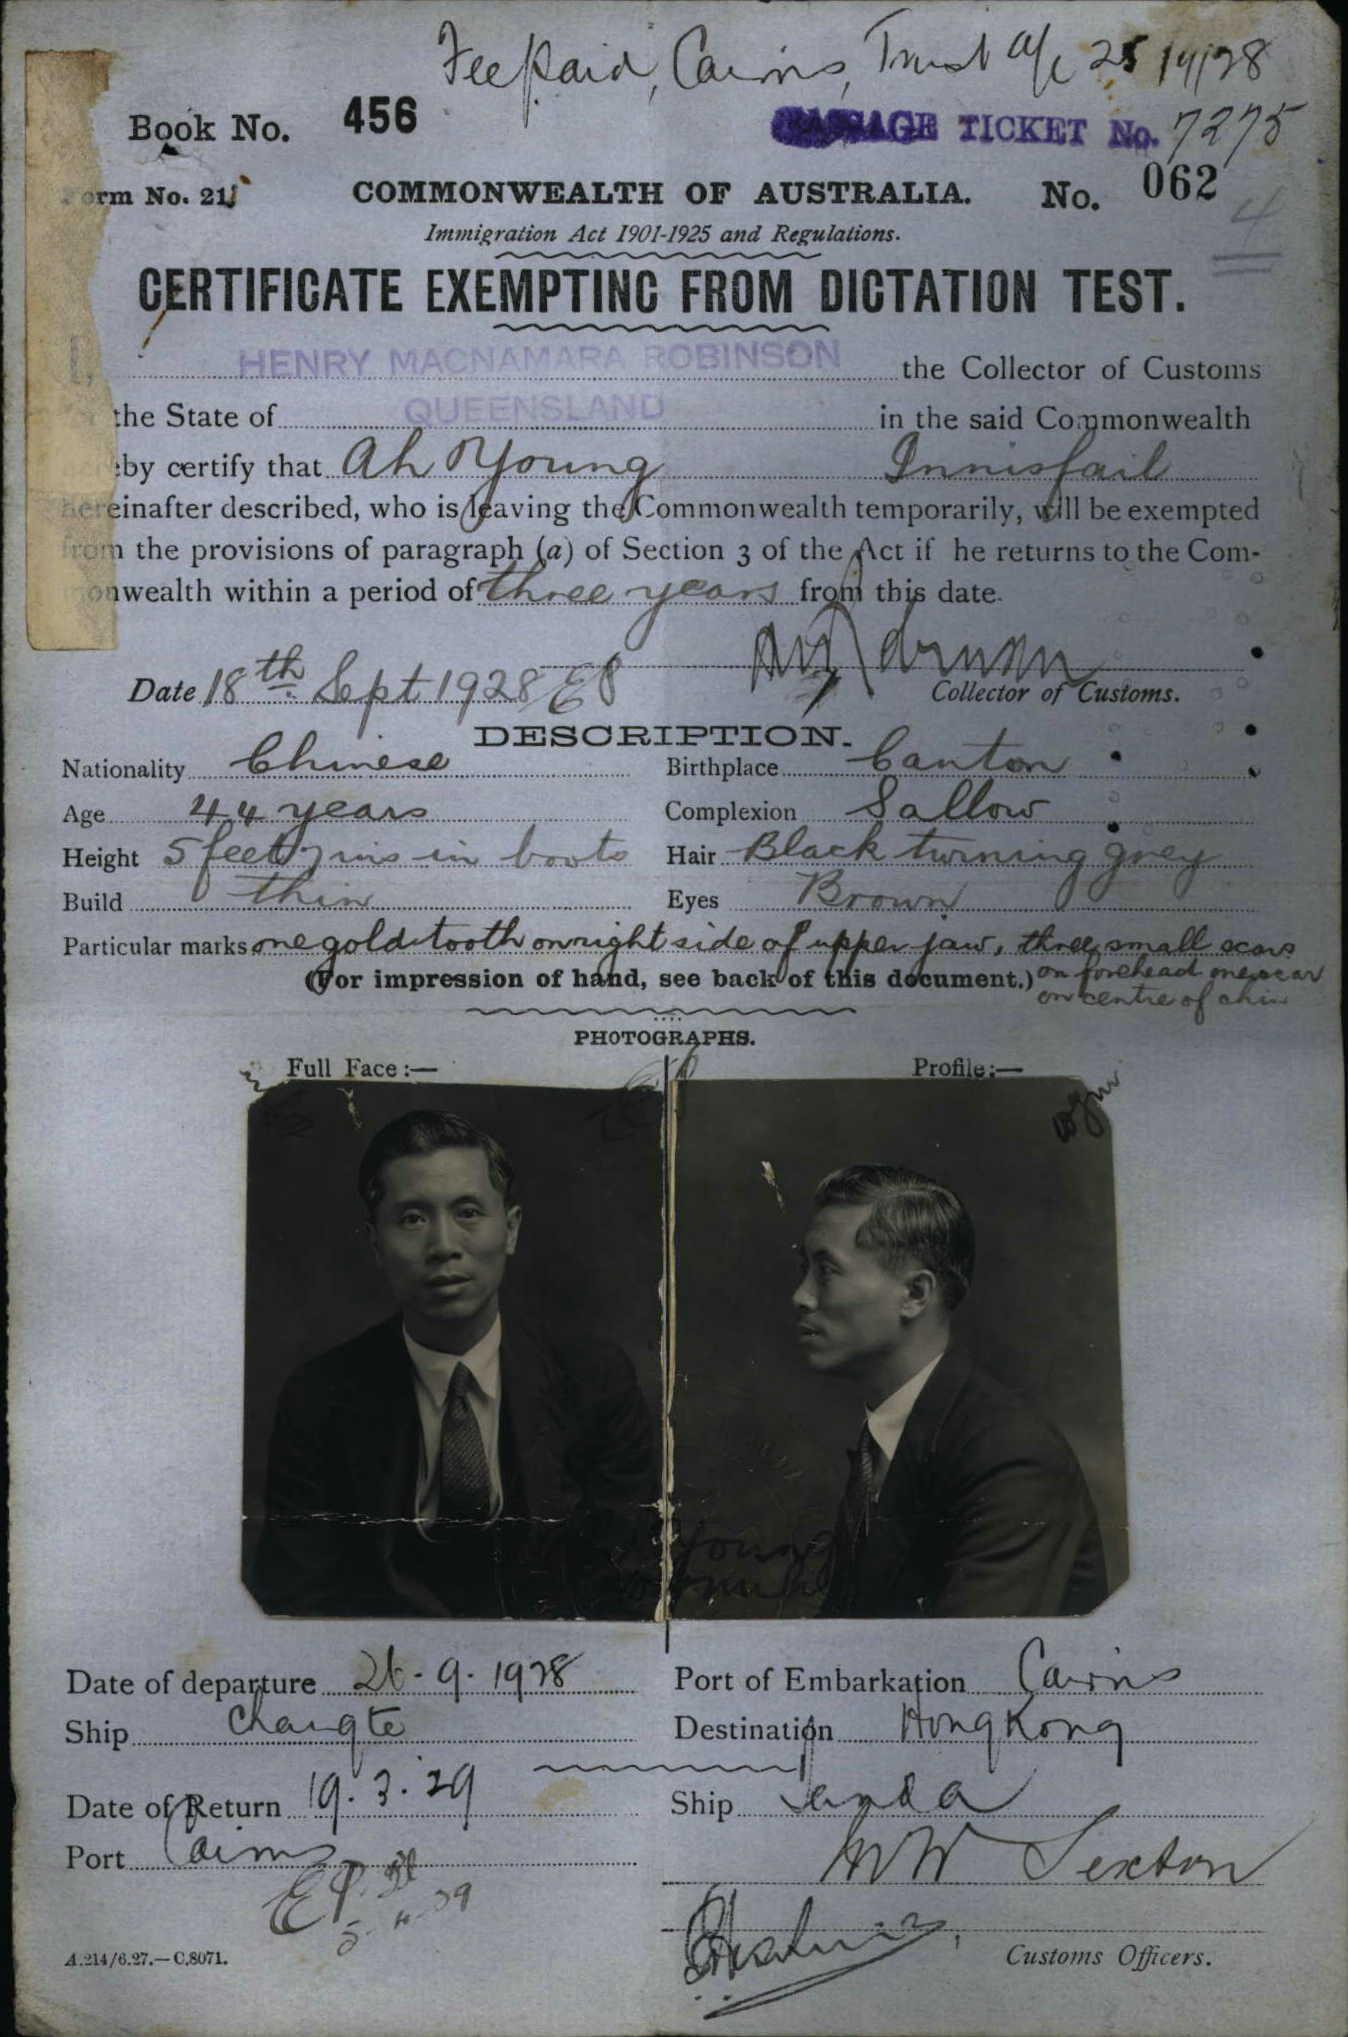 Fee paid, Cairns, Trust a/c 25/9/28
Book No. 456
PASSAGE TICKET No. 7275
Form No. 21.
COMMONWEALTH OF AUSTRALIA. No. 062
4
Immigration Act 1901-1925 and Regulations.
CERTIFICATE EXEMPTING FROM DICTATION TEST.
I, HENRY MACNAMARA ROBINSON the Collector of Customs
the State of QUEENSLAND in the said Commonwealth
hereby certify that Ah Young Innisfail
hereinafter described, who is leaving the Commonwealth temporarily, will be exempted
from the provisions of paragraph (a) of Section 3 of the Act if he returns to the Com-
monwealth within a period of three years from this date.
Date 18th Sept 1928 EP
Collector of Customs.
DESCRIPTION.
Nationality Chinese Birthplace Canton
Age 44 years Complexion Sallow
Height 5 feet 7 ins in boots Hair Black turning grey
Build thin Eyes Brown
Particular marks one gold tooth on right side of upper jaw, three small scars
(For impression of hand, see back of this document.) on forehead one scar
on centre of chin
PHOTOGRAPHS.
Full Face:— Profile:—
Young
Date of departure 26-9-1928 Port of Embarkation Cairns
Ship Changte Destination Hong Kong
Date of Return 19.3.29 Ship Tanda
Port Cairns W W Sexton
EP
5-4-29
A.214/6.27.—C.8071. Customs Officers.